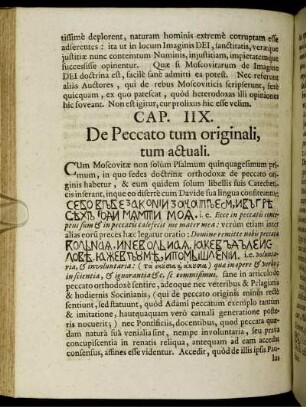 tissimè deplorent, naturam hominis extremè corruptam esse
adserentes: ita ut in locum Imaginis DEI, sanctitatis, veræque
justitiæ nunc contemtum Numinis, injustitiam, impietatemque
successisse opinentur. Quæ si Moscovitarum de Imagine
DEI doctrina est, facilè sanè admitti ea potest. Nec referunt
aliis Auctores, qui de rebus Moscoviticis scripserunt, ferè
quicquam, ex quo pateseat, quòd heterodoxas illi opiniones
hic foveant. Non est igitur, cur prolixus hic esse velim.
CAP. IIX.
De Peccato tum originali,
tum actuali.
CUm Moscovitæ non solùm Psalmum quinquagesimum primum,
in quo sedes doctrinæ orthodoxæ de peccato originis
habetur, & eum quidem solum libellis suis Catecheticis
inserant, inque eo disertè cum Davide sua lingua confiteantur:
i. e. Ecce in peccatis conceptus
sum & in peccatis calefecit me mater mea: verùm etiam inter
alias eorum preces hæc legatur oratio: Domine remitte nobis peccata
i. e. voluntaria,
& involuntaria: quæ in opere & verbo,
inscientia, & ignorantia & c. eveniunt, sane in articulo de
peccato orthodoxè sentire, adeoque nec veteribus & Pelagianis
& hodiernis Socinianis, (qui de peccato originis minùs rectè
sentiunt, sed statuunt, quòd Adami peccatum exemplo tantùm
& imitatione, hautquaquam verò carnali generatione posteris
nocuerit;) nec Pontificiis, docentibus, quod peccata quædam
naturâ suâ venialia sint, nominatimque, quòd, seu prava
concupiscentia in renatis reliqua, antequam ad eam accedat
consensus, affines esse videntur. Accedit, quòd de illis ipsis Pau-
la